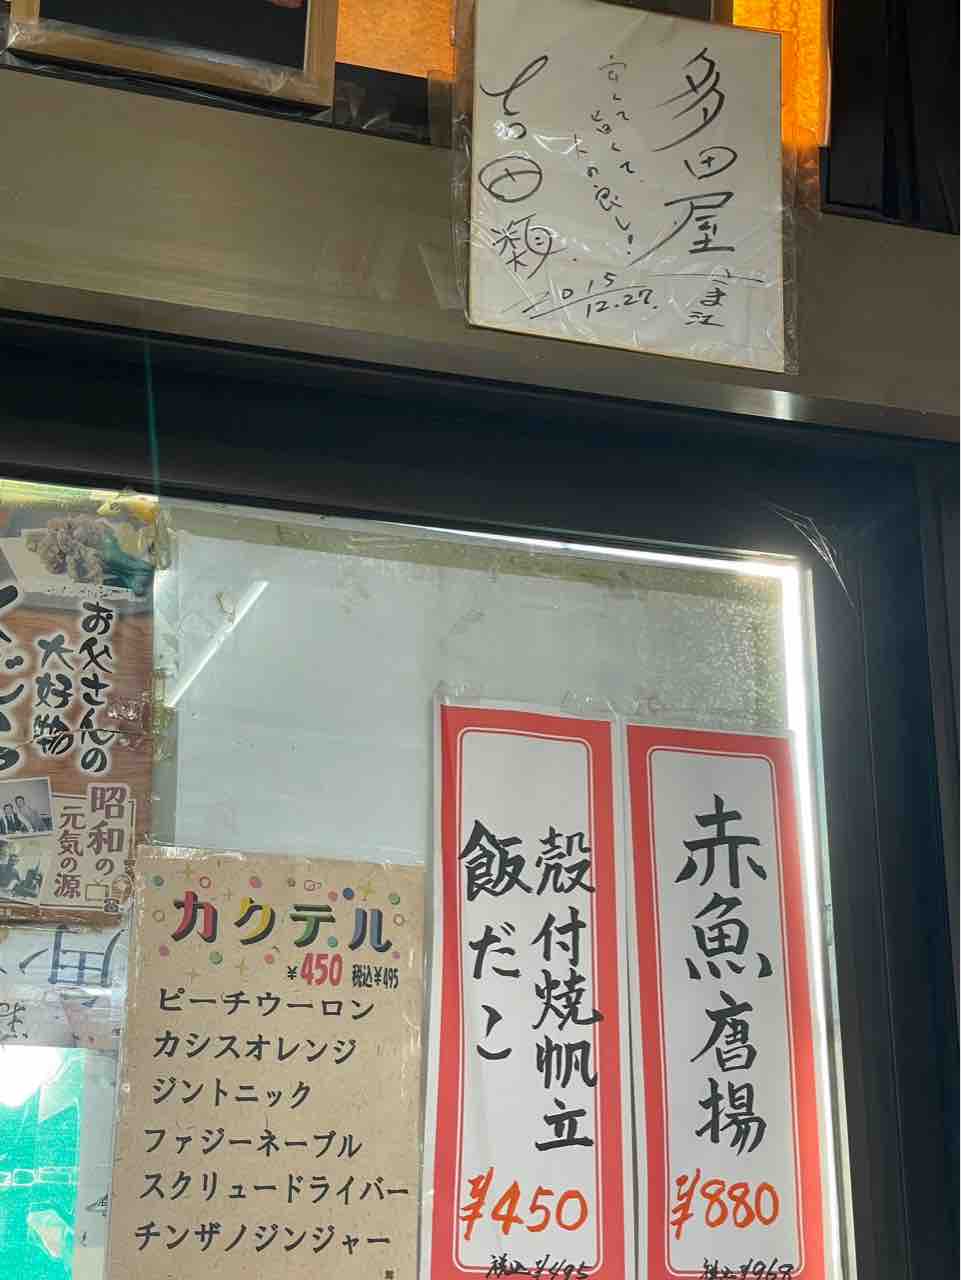 多田屋
こま江
安くて
旨くて、
人の良し!
吉田類.
2015
12.27.
お父さんの
大好物
昭和の
元気の源
カクテル
¥450 税込¥495
ピーチウーロン
カシスオレンジ
ジントニック
ファジーネーブル
スクリュードライバー
チンザノジンジャー
赤魚唐揚
¥880
税込¥968
殻付焼帆立
飯だこ
¥450
税込¥495